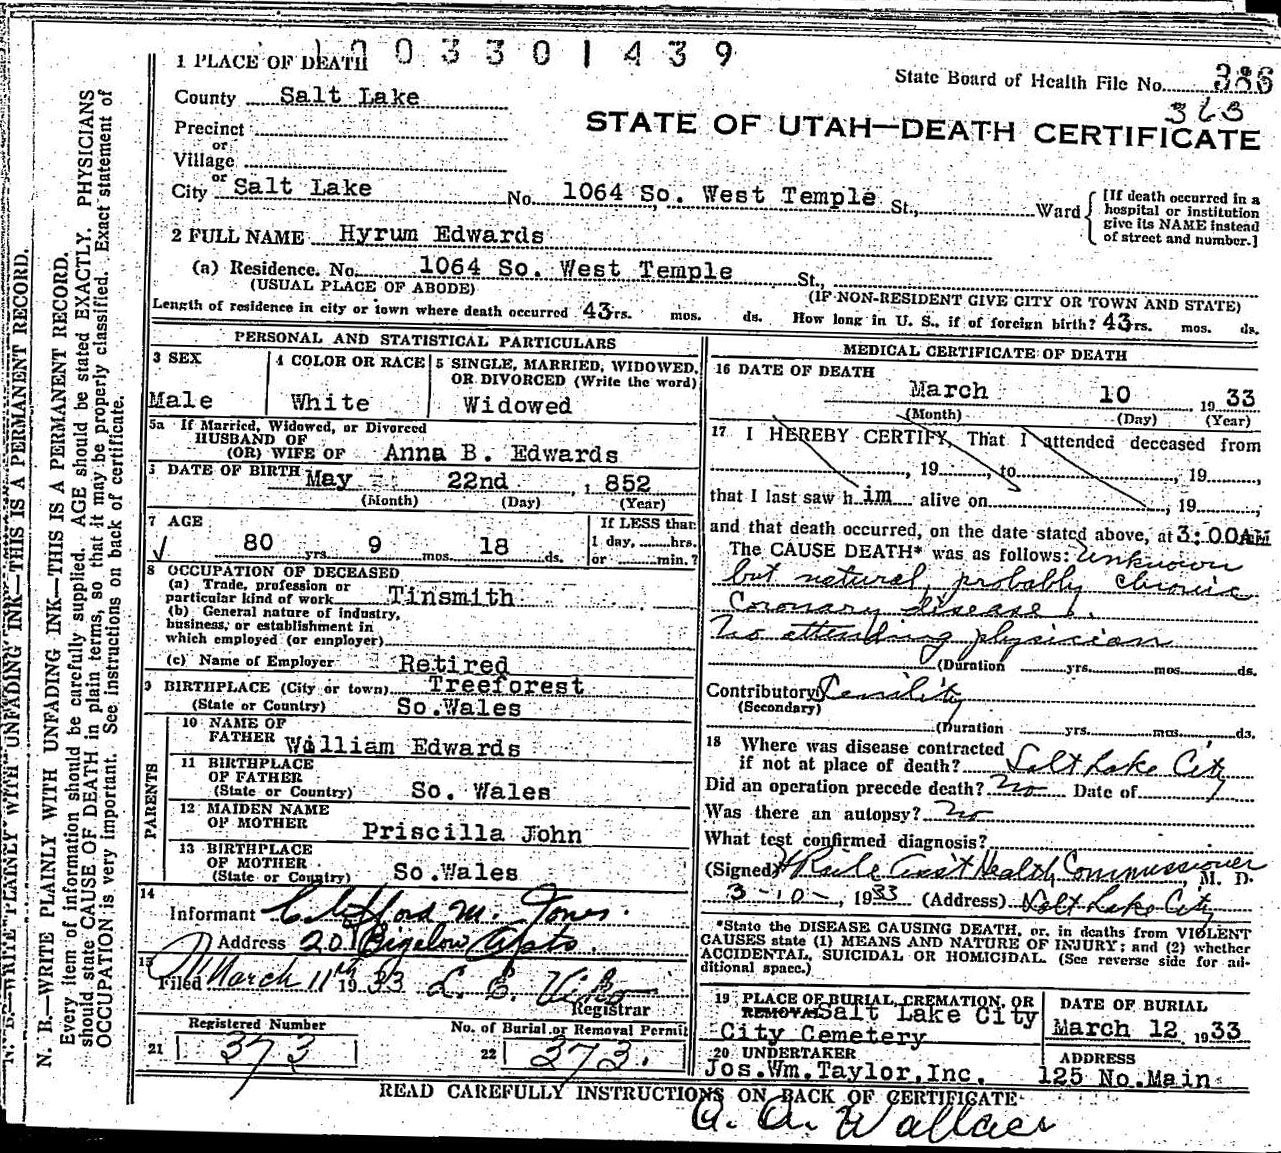 1003301439
1 PLACE OF DEATH
State Board of Health File No. 386
363
County Salt Lake
STATE OF UTAH—DEATH CERTIFICATE
Precinct
or
Village
or
City Salt Lake No. 1064 So. West Temple St., Ward
[If death occurred in a
hospital or institution
give its NAME instead
of street and number.]
2 FULL NAME Hyrum Edwards
(a) Residence. No. 1064 So. West Temple St.,
(USUAL PLACE OF ABODE)
(IF NON-RESIDENT GIVE CITY OR TOWN AND STATE)
Length of residence in city or town where death occurred 43 rs. mos. ds. How long in U. S., if of foreign birth? 43 rs. mos. ds.
PERSONAL AND STATISTICAL PARTICULARS
3 SEX
Male
4 COLOR OR RACE
White
5 SINGLE, MARRIED, WIDOWED,
OR DIVORCED (Write the word)
Widowed
5a If Married, Widowed, or Divorced
HUSBAND OF
(OR) WIFE OF Anna B. Edwards
DATE OF BIRTH May 22nd , 1852
(Month) (Day) (Year)
7 AGE
80 yrs. 9 mos. 18 ds.
If LESS than
1 day, hrs.
or min.?
8 OCCUPATION OF DECEASED
(a) Trade, profession or
particular kind of work Tinsmith
(b) General nature of industry,
business, or establishment in
which employed (or employer)
(c) Name of Employer Retired
9 BIRTHPLACE (City or town) Treeforest
(State or Country) So.Wales
PARENTS
10 NAME OF
FATHER William Edwards
11 BIRTHPLACE
OF FATHER
(State or Country) So. Wales
12 MAIDEN NAME
OF MOTHER Priscilla John
13 BIRTHPLACE
OF MOTHER
(State or Country) So.Wales
14
Informant Clifford M. Jones.
Address 201 Bigelow Apts.
15
Filed March 11th 1933 L. E. Viko
Registrar
Registered Number
21 373
No. of Burial or Removal Permit
22 373.
MEDICAL CERTIFICATE OF DEATH
16 DATE OF DEATH
March 10 1933
(Month) (Day) (Year)
17 I HEREBY CERTIFY, That I attended deceased from
, 19 , to , 19 ,
that I last saw h im alive on , 19 ,
and that death occurred, on the date stated above, at 3:00AM
The CAUSE DEATH* was as follows: Unknown
but natural, probably chronic
Coronary disease.
No attending physician
(Duration yrs. mos. ds.
Contributory Senility
(Secondary)
(Duration yrs. mos. ds.
18 Where was disease contracted
if not at place of death? Salt Lake City
Did an operation precede death? No Date of
Was there an autopsy? No
What test confirmed diagnosis?
(Signed) Ass't Health Commissioner, M. D.
3-10-, 1933 (Address) Salt Lake City
*State the DISEASE CAUSING DEATH, or, in deaths from VIOLENT
CAUSES state (1) MEANS AND NATURE OF INJURY; and (2) whether
ACCIDENTAL, SUICIDAL OR HOMICIDAL. (See reverse side for ad-
ditional space.)
19 PLACE OF BURIAL, CREMATION, OR
REMOVAL Salt Lake City
City Cemetery
DATE OF BURIAL
March 12 1933
20 UNDERTAKER
Jos.Wm.Taylor,Inc.
ADDRESS
125 No.Main
READ CAREFULLY INSTRUCTIONS ON BACK OF CERTIFICATE
A. A. Wallace
N. B.—WRITE PLAINLY WITH UNFADING INK—THIS IS A PERMANENT RECORD.
N. B.—WRITE PLAINLY WITH UNFADING INK—THIS IS A PERMANENT RECORD.
Every item of information should be carefully supplied. AGE should be stated EXACTLY. PHYSICIANS
should state CAUSE OF DEATH in plain terms, so that it may be properly classified. Exact statement of
OCCUPATION is very important. See instructions on back of certificate.